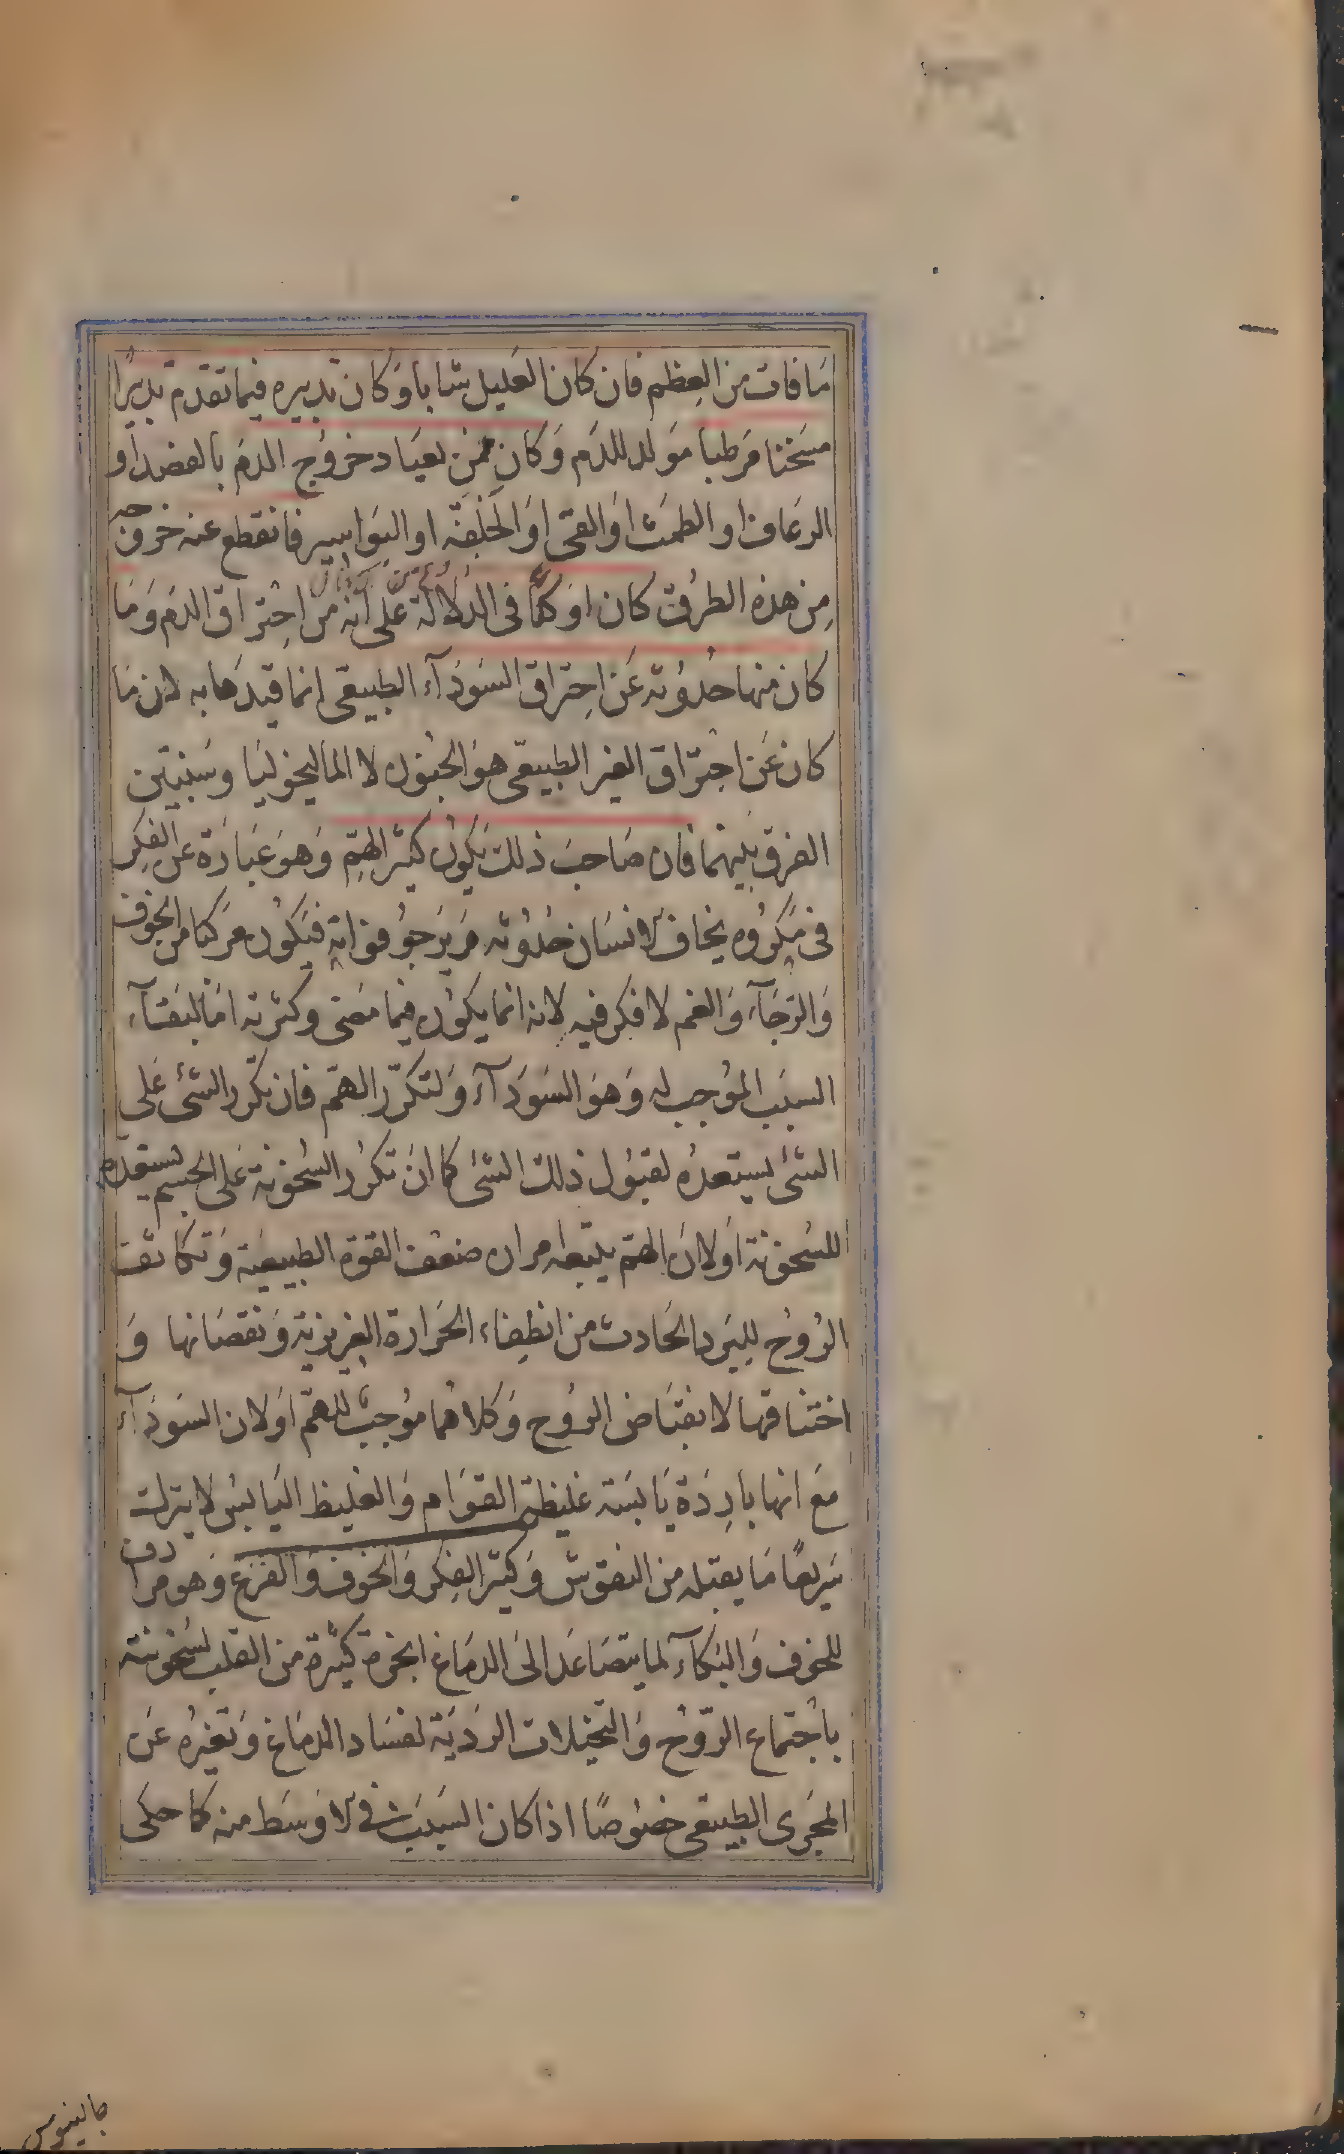 ما فات من العظم فان كان العليل شابا وكان تدبيره فيما تقدم تدبيرا
مسخنا مرطبا مولد للدم وكان ممن يعتاد خروج الدم بالفصد او
الرعاف او الطمث او القى او الخلفة او البواسير فانقطع عنه خروجه
من هذه الطرق كان اوكد فى الدلالة على انه من احتراق الدم وما
كان منها حدوثه عن احتراق السودآء الطبيعى انما قيدها به لان ما
كان عن احتراق الغير الطبيعى هو الجنون لا الماليخوليا وسنبين
الفرق بينهما فان صاحب ذلك يكون كثير الهم وهو عبارة عن الفكر
فى مكروه يخاف الانسان حدوثه ويرجو فواته فيكون مركبا من الخوف
والرجآء والغم لا فكر فيه لانه انما يكون فيما مضى وكثرته اما لبقآء
السبب الموجب له وهو السودآء ولتكرر الهم فان تكرر الشئ على
الشئ يستعده لقبول ذلك الشئ كما ان تكرر السخونة على الجسم يستعده
للسخونة او لان الهم يتبعه امران ضعف القوة الطبيعية وتكاثف
الروح للبرد الحادث من انطفاء الحرارة الغريزية ونقصانها و
اختناقها لانقباض الروح وكلاهما موجب للهم او لان السودآء
مع انها باردة يابسة غليظة القوام والغليظ اليابس لا يترك
سريعا ما يقبله من النقوش وكثير الفكر والخوف والفزع وهو مرادف
للخوف والبكآء لما يتصاعد الى الدماغ ابخرة كثيرة من القلب لسخونته
باجتماع الروح والتخيلات الردية لفساد الدماغ وتغيره عن
المجرى الطبيعى خصوصا اذا كان السبب فى الاوسط منه كما حكى
جالينوس